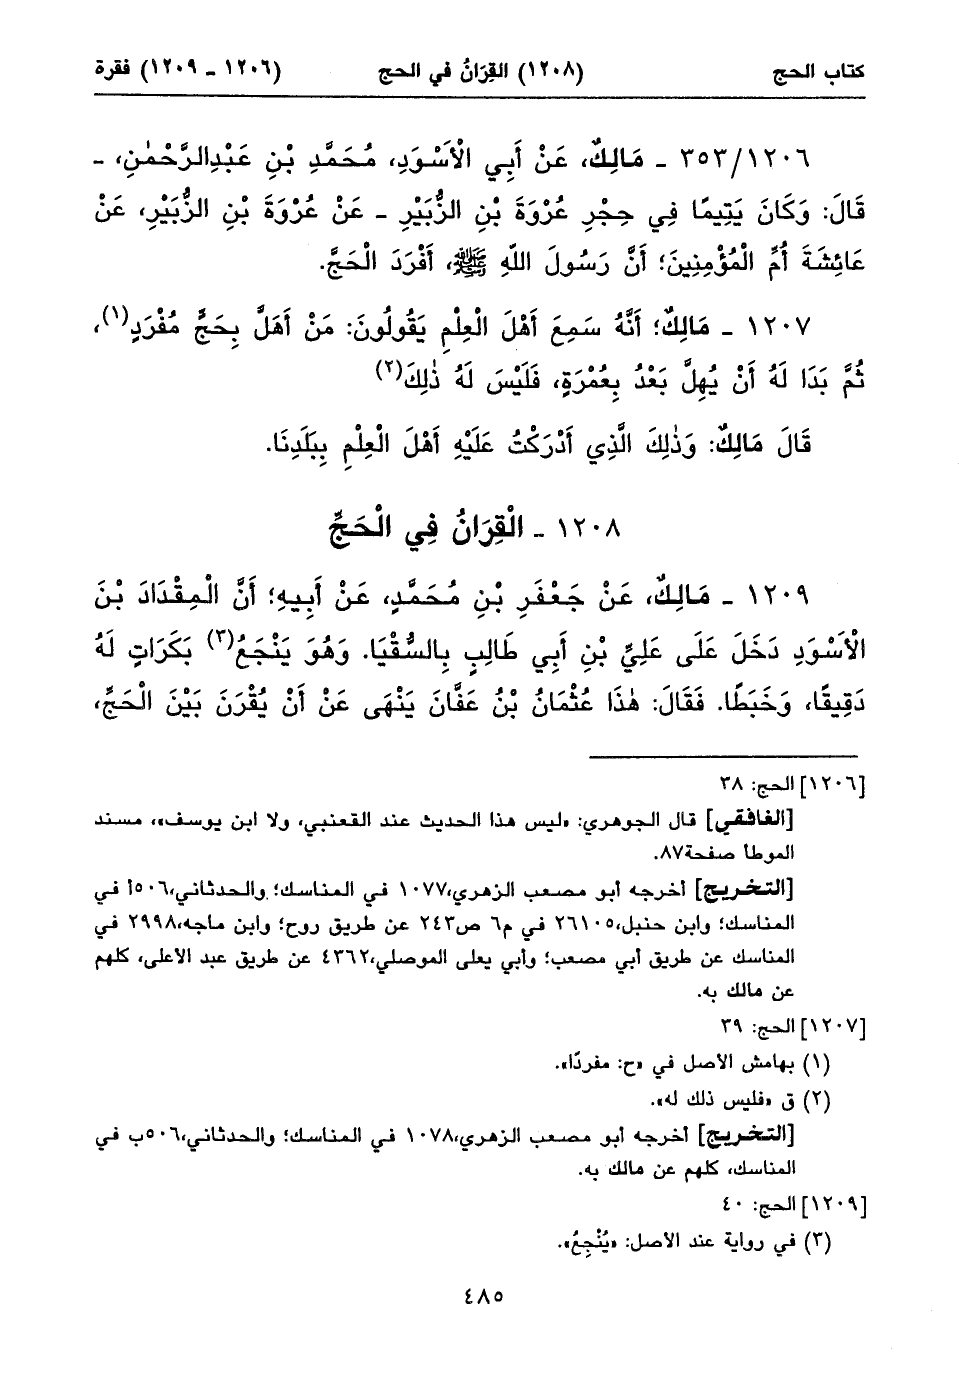 كتاب الحج (١٢٠٨) القِرَانُ في الحج (١٢٠٦ - ١٢٠٩) فقرة
٣٥٣/١٢٠٦ - مَالِكٌ، عَنْ أَبِي الْأَسْوَدِ، مُحَمَّدِ بْنِ عَبْدِالرَّحْمٰنِ، -
قَالَ: وَكَانَ يَتِيمًا فِي حِجْرِ عُرْوَةَ بْنِ الزُّبَيْرِ - عَنْ عُرْوَةَ بْنِ الزُّبَيْرِ، عَنْ
عَائِشَةَ أُمِّ الْمُؤْمِنِينَ؛ أَنَّ رَسُولَ اللّهِ ﷺ، أَفْرَدَ الْحَجَّ.
١٢٠٧ - مَالِكٌ؛ أَنَّهُ سَمِعَ أَهْلَ الْعِلْمِ يَقُولُونَ: مَنْ أَهَلَّ بِحَجٍّ مُفْرَدٍ(١)،
ثُمَّ بَدَا لَهُ أَنْ يُهِلَّ بَعْدُ بِعُمْرَةٍ، فَلَيْسَ لَهُ ذٰلِكَ(٢)
قَالَ مَالِكٌ: وَذٰلِكَ الَّذِي أَدْرَكْتُ عَلَيْهِ أَهْلَ الْعِلْمِ بِبَلَدِنَا.
١٢٠٨ - الْقِرَانُ فِي الْحَجِّ
١٢٠٩ - مَالِكٌ، عَنْ جَعْفَرِ بْنِ مُحَمَّدٍ، عَنْ أَبِيهِ؛ أَنَّ الْمِقْدَادَ بْنَ
الْأَسْوَدِ دَخَلَ عَلَى عَلِيِّ بْنِ أَبِي طَالِبٍ بِالسُّقْيَا. وَهُوَ يَنْجَعُ(٣) بَكَرَاتٍ لَهُ
دَقِيقًا، وَخَبَطًا. فَقَالَ: هٰذَا عُثْمَانُ بْنُ عَفَّانَ يَنْهَى عَنْ أَنْ يُقْرَنَ بَيْنَ الْحَجِّ،
[١٢٠٦] الحج: ٣٨
[الغافقي] قال الجوهري: «ليس هذا الحديث عند القعنبي، ولا ابن يوسف»، مسند
الموطأ صفحة٨٧.
[التخريج] أخرجه أبو مصعب الزهري،١٠٧٧ في المناسك؛ والحدثاني،٥٠٦أ في
المناسك؛ وابن حنبل،٢٦١٠٥ في م٦ ص٢٤٣ عن طريق روح؛ وابن ماجه،٢٩٩٨ في
المناسك عن طريق أبي مصعب؛ وأبي يعلى الموصلي،٤٣٦٢ عن طريق عبد الأعلى، كلهم
عن مالك به.
[١٢٠٧] الحج: ٣٩
(١) بهامش الأصل في «ح: مفردًا».
(٢) ق «فليس ذلك له».
[التخريج] أخرجه أبو مصعب الزهري،١٠٧٨ في المناسك؛ والحدثاني،٥٠٦ب في
المناسك، كلهم عن مالك به.
[١٢٠٩] الحج: ٤٠
(٣) في رواية عند الأصل: «يُنْجِعُ».
٤٨٥